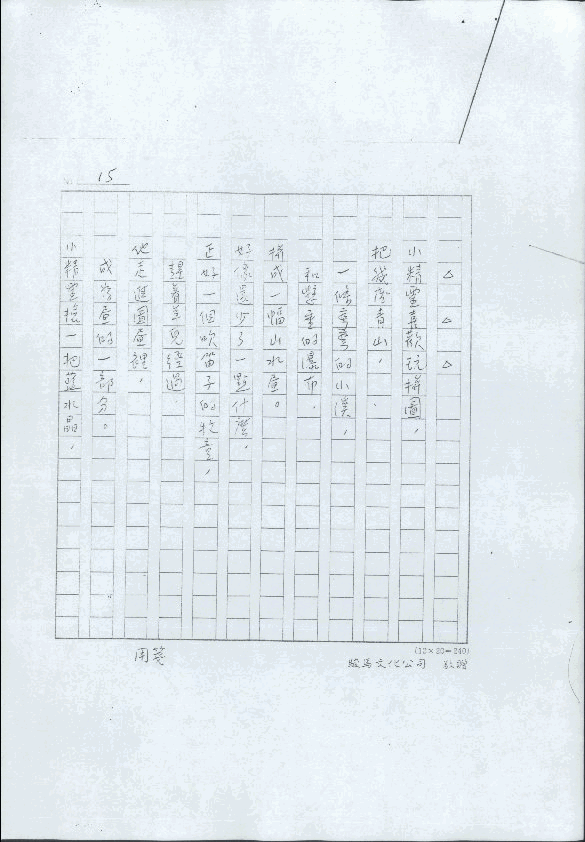 15
△ △ △
小精靈喜歡玩拼圖，
把幾座青山，
一條彎彎的小溪，
和懸垂的瀑布，
拼成一幅山水畫。
好像還少了一點什麼，
正好一個吹笛子的牧童，
趕著羊兒經過
他走進圖畫裡，
成為畫的一部分。
小精靈撿一把藍水晶，
(12×20=240)
駿馬文化公司 敬贈
用箋